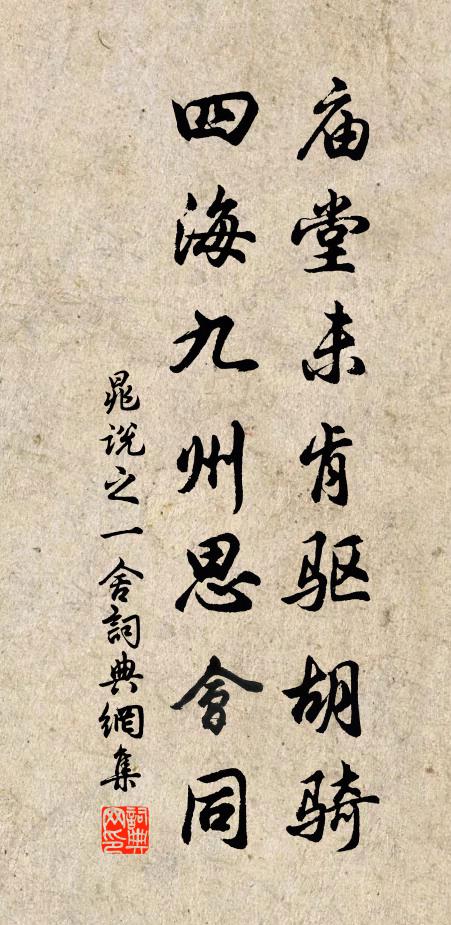 庙堂未肯驱胡骑
四海九州思会同
晁说之一舍詞典網集
詞典网印